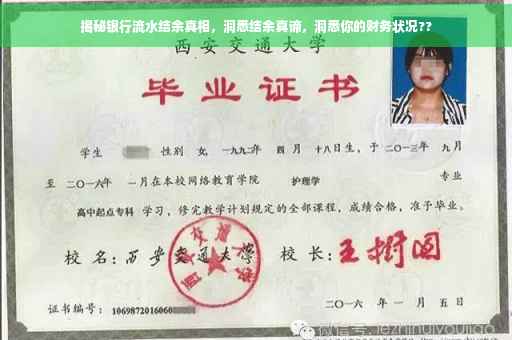 揭秘银行流水结余真相，洞悉结余真谛，洞悉你的财务状况??
西安交通大学
毕业证书
学生 性别 女, 一九九二年 四月 十八日生, 于二〇一三年 九月
至 二〇一六年 一月在本校网络教育学院 护理学 专业
高中起点专科 学习, 修完教学计划规定的全部课程, 成绩合格, 准予毕业。
校名: 西安交通大学 校长: 王树国
西安交通大学
二〇一六年一月五日
证书编号: 1069872016060
微信号: jezhinuiyoujiao